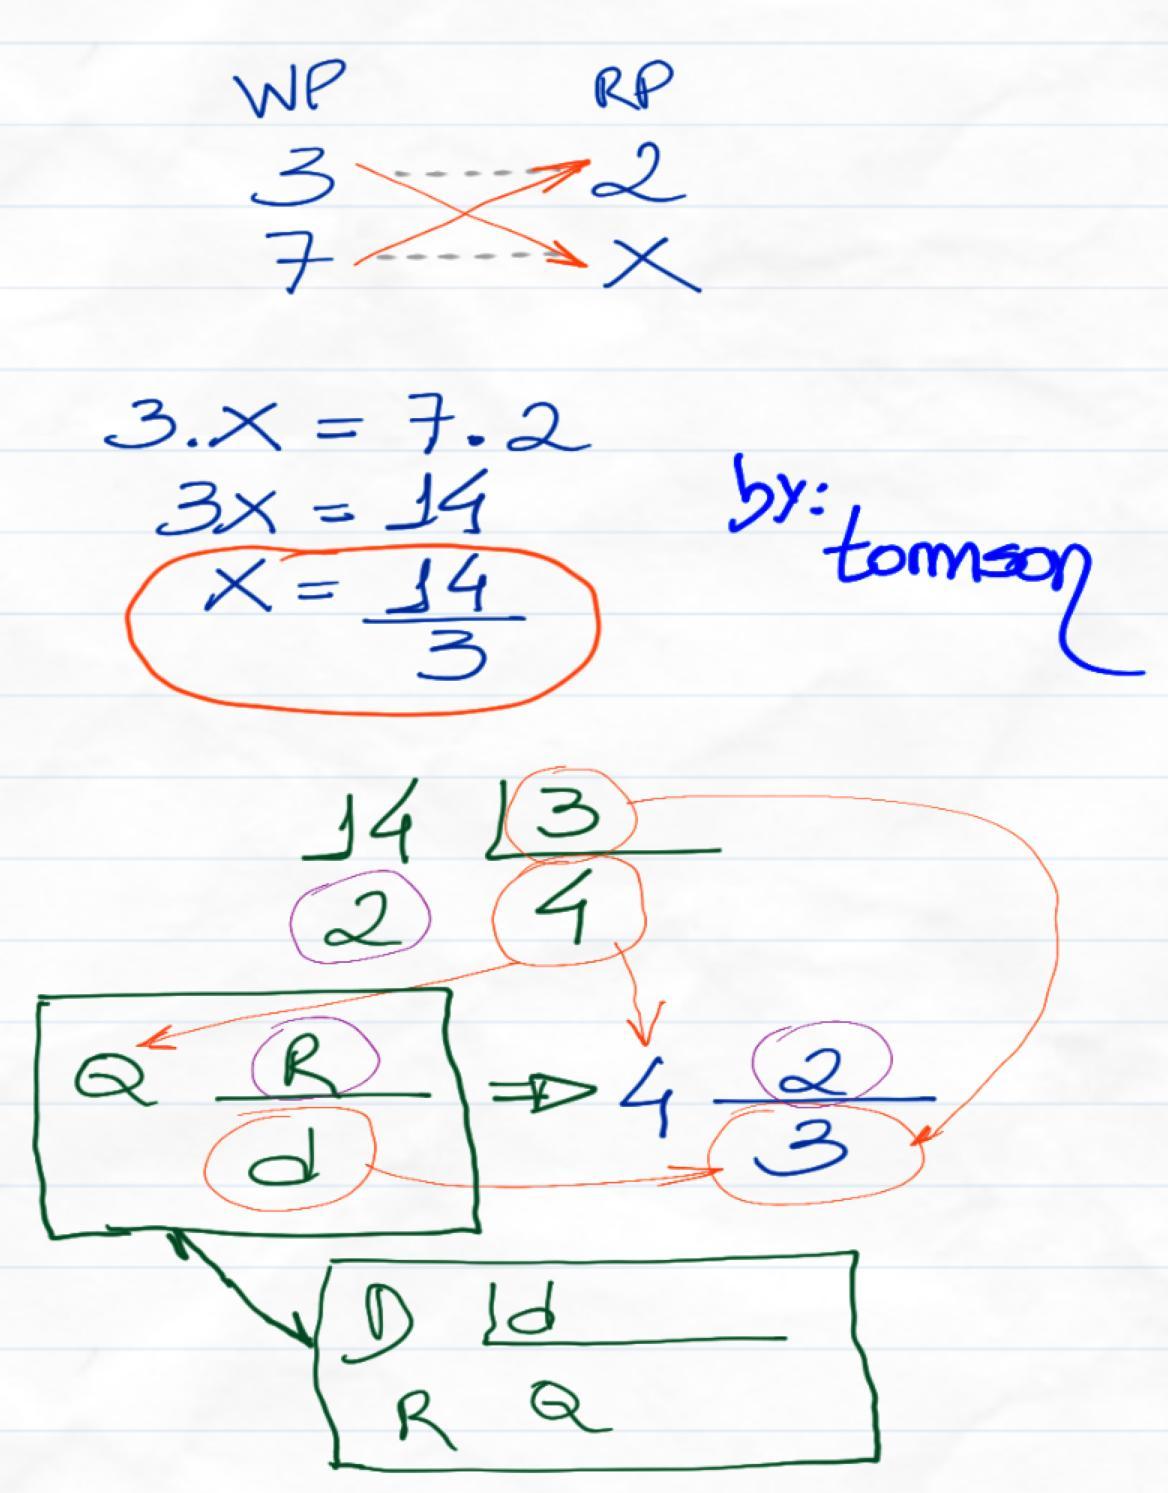 WP RP
3 2
7 X
3.X = 7.2
3X = 14
X = 14/3
by:
tomson
14 3
2 4
Q R/d ⇒ 4 2/3
D d
R Q